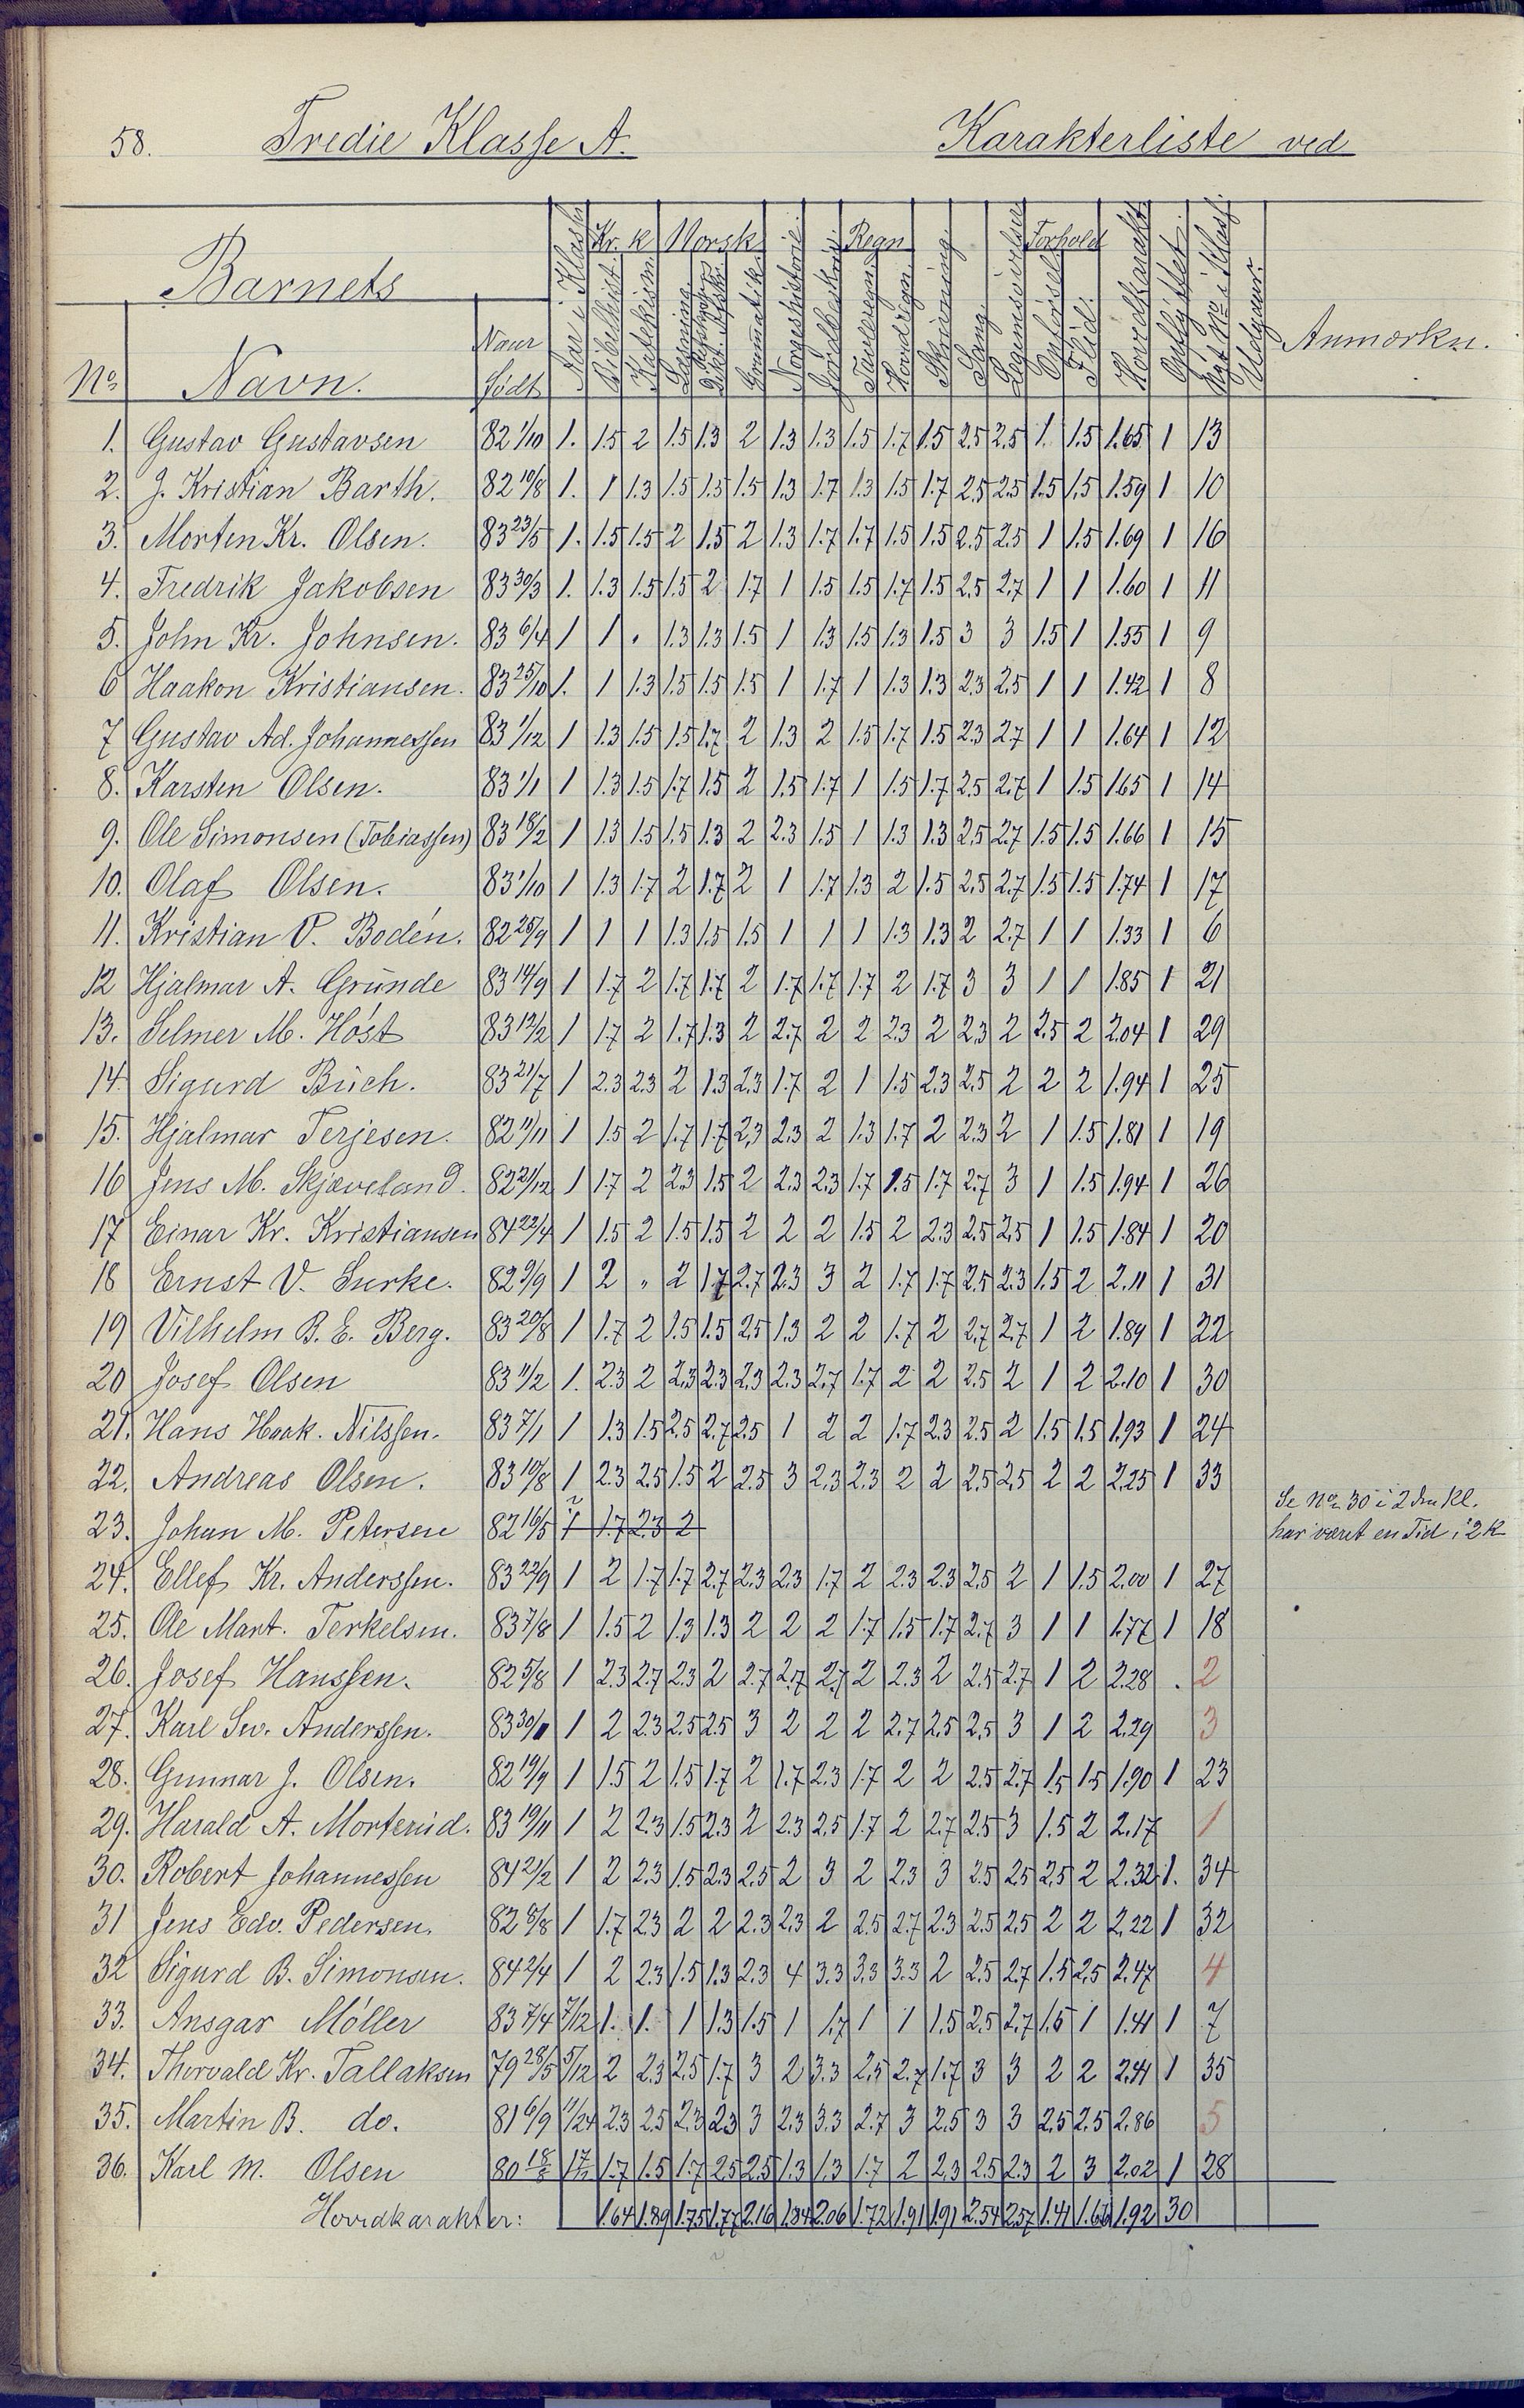 58. Tredie Klasse A. Karakterliste ved
Barnets
No Navn. Naar Født Aar i Klasse Kr. k Bibelhist. Katekism. Norsk Læsning Grammatik Norgeshistorie Jordbeskriv. Regn Tavleregn. Hovdregn. Skrivning Sang Legemsøvelser Forhold Opførsel Flid. Hovedkarakt. Opflyttet Udgaar. Anmærkn.
1. Gustav Gustavsen 82 1/10 1. 1.5 2 1.5 1.3 2 1.3 1.3 1.5 1.7 1.5 2.5 2.5 1. 1.5 1.65 1 13
2. J. Kristian Barth. 82 10/8 1. 1 1.3 1.5 1.5 1.5 1.3 1.7 1.3 1.5 1.7 2.5 2.5 1.5 1.5 1.59 1 10
3. Morten Kr. Olsen. 83 23/5 1. 1.5 1.5 2 1.5 2 1.3 1.7 1.7 1.5 1.5 2.5 2.5 1 1.5 1.69 1 16
4. Fredrik Jakobsen 83 30/3 1. 1.3 1.5 1.5 2 1.7 1 1.5 1.5 1.7 1.5 2.5 2.7 1 1 1.60 1 11
5. John Kr. Johnsen. 83 6/4 1 1 . 1.3 1.3 1.5 1 1.3 1.5 1.3 1.5 3 3 1.5 1 1.55 1 9
6 Haakon Kristiansen. 83 25/10 1. 1 1.3 1.5 1.5 1.5 1 1.7 1 1.3 1.3 2.3 2.5 1 1 1.42 1 8
7 Gustav Ad. Johannessen 83 1/12 1 1.3 1.5 1.5 1.7 2 1.3 2 1.5 1.7 1.5 2.3 2.7 1 1 1.64 1 12
8. Karsten Olsen. 83 1/1 1 1.3 1.5 1.7 1.5 2 1.5 1.7 1 1.5 1.7 2.5 2.7 1 1.5 1.65 1 14
9. Ole Simonsen (Tobiassen) 83 18/2 1 1.3 1.5 1.5 1.3 2 2.3 1.5 1 1.3 1.3 2.5 2.7 1.5 1.5 1.66 1 15
10. Olaf Olsen. 83 1/10 1 1.3 1.7 2 1.7 2 1 1.7 1.3 2 1.5 2.5 2.7 1.5 1.5 1.74 1 17
11. Kristian P. Bodén. 82 25/9 1 1 1 1.3 1.5 1.5 1 1 1 1.3 1.3 2 2.7 1 1 1.33 1 6
12 Hjalmar A. Gründe 83 14/9 1 1.7 2 1.7 1.7 2 1.7 1.7 1.7 2 1.7 3 3 1 1 1.85 1 21
13. Selmer M. Høst 83 12/2 1 1.7 2 1.7 1.3 2 2.7 2 2 2.3 2 2.3 2 2.5 2 2.04 1 29
14. Sigurd Büch. 83 21/7 1 2.3 2.3 2 1.3 2.3 1.7 2 1 1.5 2.3 2.5 2 2 2 1.94 1 25
15. Hjalmar Terjesen. 82 11/11 1 1.5 2 1.7 1.7 2.3 2.3 2 1.3 1.7 2 2.3 2 1 1.5 1.81 1 19
16 Jens M. Skjæveland. 82 21/12 1 1.7 2 2.3 1.5 2 2.3 2.3 1.7 1.5 1.7 2.7 3 1 1.5 1.94 1 26
17 Einar Kr. Kristiansen 84 22/4 1 1.5 2 1.5 1.5 2 2 2 1.5 2 2.3 2.5 2.5 1 1.5 1.84 1 20
18 Ernst V. Surke. 82 9/9 1 2 " 2 1.7 2.7 2.3 3 2 1.7 1.7 2.5 2.3 1.5 2 2.11 1 31
19 Vilhelm B. E. Berg. 83 20/8 1 1.7 2 1.5 1.5 2.5 1.3 2 2 1.7 2 2.7 2.7 1 2 1.89 1 22
20 Josef Olsen 83 11/2 1. 2.3 2 2.3 2.3 2.3 2.3 2.7 1.7 2 2 2.5 2 1 2 2.10 1 30
21. Hans Haak. Nilssen. 83 7/1 1 1.3 1.5 2.5 2.7 2.5 1 2 2 1.7 2.3 2.5 2 1.5 1.5 1.93 1 24
22. Andreas Olsen. 83 10/8 1 2.3 2.5 1.5 2 2.5 3 2.3 2.3 2 2 2.5 2.5 2 2 2.25 1 33
Se No 30 i 2den Kl.
23. Johan M. Petersen 82 16/5 1 1.7 2.3 2 har været en Tid i 2 K
24. Ellef Kr. Anderssen. 83 22/9 1 2 1.7 1.7 2.7 2.3 2.3 1.7 2 2.3 2.3 2.5 2 1 1.5 2.00 1 27
25. Ole Mart. Terkelsen. 83 7/8 1 1.5 2 1.3 1.3 2 2 2 1.7 1.5 1.7 2.7 3 1 1 1.77 1 18
26. Josef Hanssen. 82 5/8 1 2.3 2.7 2.3 2 2.7 2.7 2.7 2 2.3 2 2.5 2.7 1 2 2.28 . 2
27. Karl Sev. Anderssen. 83 30/11 1 2 2.3 2.5 2.5 3 2 2 2 2.7 2.5 2.5 3 1 2 2.29 3
28. Gunnar J. Olsen. 82 19/9 1 1.5 2 1.5 1.7 2 1.7 2.3 1.7 2 2 2.5 2.7 1.5 1.5 1.90 1 23
29. Harald A. Morterud. 83 19/11 1 2 2.3 1.5 2.3 2 2.3 2.5 1.7 2 2.7 2.5 3 1.5 2 2.17 1
30. Robert Johannessen 84 21/2 1 2 2.3 1.5 2.3 2.5 2 3 2 2.3 3 2.5 2.5 2.5 2 2.32 1. 34
31 Jens Edv. Pedersen. 82 8/8 1 1.7 2.3 2 2 2.3 2.3 2 2.5 2.7 2.3 2.5 2.5 2 2 2.22 1 32
32 Sigurd B. Simonsen. 84 2/4 1 2 2.3 1.5 1.3 2.3 4 3.3 3.3 3.3 2 2.5 2.7 1.5 2.5 2.47 4
33. Ansgar Møller 83 7/4 7/12 1. 1. 1 1.3 1.5 1 1.7 1 1 1.5 2.5 2.7 1.5 1 1.41 1 7
34. Thorvald Kr. Tallaksen 79 28/5 5/12 2 2.3 2.5 1.7 3 2 3.3 2.5 2.7 1.7 3 3 2 2 2.41 1 35
35. Martin B. do. 81 6/9 11/24 2.3 2.5 2.3 2.3 3 2.3 3.3 2.7 3 2.5 3 3 2.5 2.5 2.86 5
36. Karl M. Olsen 80 1.7 1.5 1.7 2.5 2.5 1.3 1.3 1.7 2 2.3 2.5 2.3 2 3 2.02 1 28
Hovedkarakter: 1.64 1.89 1.75 1.77 2.16 1.84 2.06 1.72 1.91 1.91 2.54 2.57 1.41 1.66 1.92 30